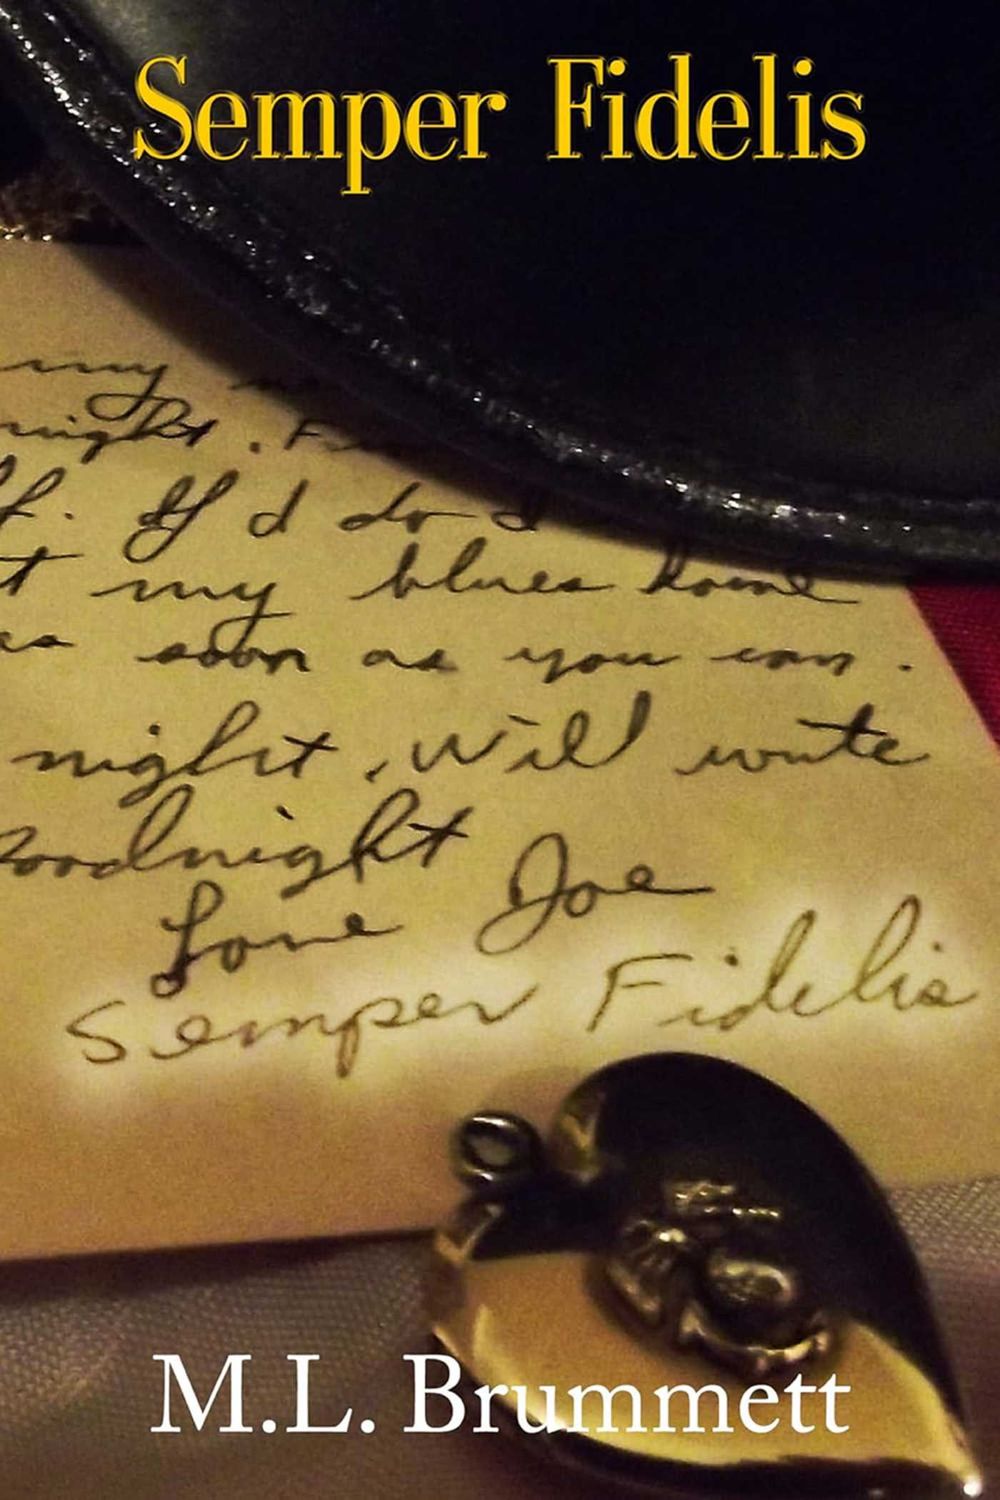 Semper Fidelis
my
night. F
If I'd do
t my blues home
as soon as you can.
night, will write
Goodnight
Love Joe
Semper Fidelis
M.L. Brummett